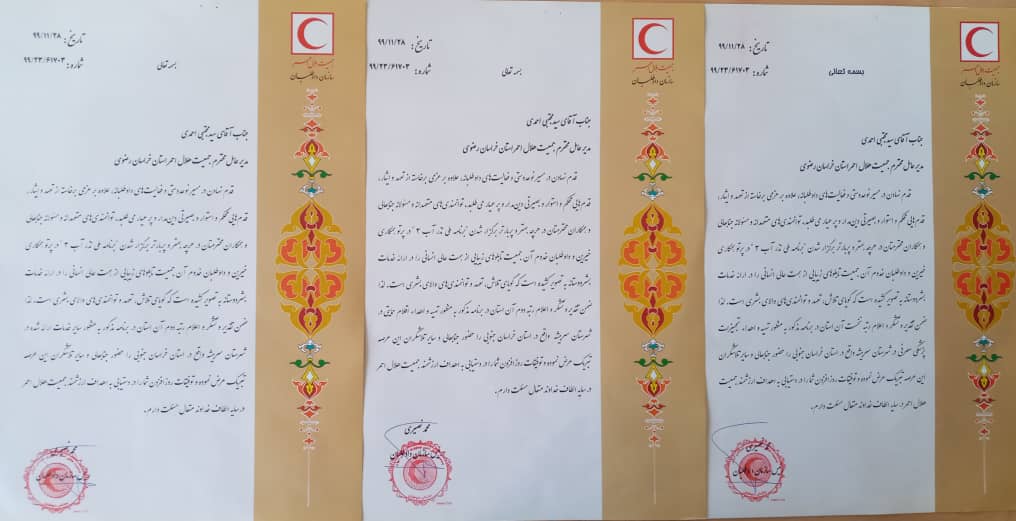 تاریخ: ۹۹/۱۱/۲۸
شماره: ۹۹/۲۳/۶۱۷۰۳
بسمه تعالی
جمعیت هلال احمر
سازمان داوطلبان
جناب آقای سید مجتبی احمدی
مدیر عامل محترم جمعیت هلال احمر استان خراسان رضوی
قدم نهادن در مسیر نوعدوستی و فعالیت‌های داوطلبانه، علاوه بر عزمی برخاسته از تعهد و ایثار،
قدم‌هایی محکم و استوار و بصیرتی دین‌مدار و پر عیار می‌طلبد، توانمندی‌های متعهدانه و مسئولانه جنابعالی
و همکاران محترمتان در هرچه بهتر و پربارتر برگزار شدن "برنامه ملی نذر آب ۳" در پرتو همکاری
خیرین و داوطلبان خدوم آن جمعیت تابلوهای زیبایی از همت عالی انسانی را در ارائه خدمات
بشردوستانه به تصویر کشیده است که گویای تلاش، تعهد و توانمندی‌های والای بشری است. لذا
ضمن تقدیر و تشکر و اعلام رتبه سوم آن استان در برنامه مذکور به منظور سایر خدمات ارائه شده در
شهرستان سربیشه واقع در استان خراسان جنوبی را حضور جنابعالی و سایر تلاشگران این عرصه
تبریک عرض نموده و توفیقات روزافزون شما را در دستیابی به اهداف ارزشمند جمعیت هلال احمر
در سایه الطاف خداوند متعال مسئلت دارم.
محمد نصیری
رئیس سازمان داوطلبان
تاریخ: ۹۹/۱۱/۲۸
شماره: ۹۹/۲۳/۶۱۷۰۳
بسمه تعالی
جمعیت هلال احمر
سازمان داوطلبان
جناب آقای سید مجتبی احمدی
مدیر عامل محترم جمعیت هلال احمر استان خراسان رضوی
قدم نهادن در مسیر نوعدوستی و فعالیت‌های داوطلبانه، علاوه بر عزمی برخاسته از تعهد و ایثار،
قدم‌هایی محکم و استوار و بصیرتی دین‌مدار و پر عیار می‌طلبد، توانمندی‌های متعهدانه و مسئولانه جنابعالی
و همکاران محترمتان در هرچه بهتر و پربارتر برگزار شدن "برنامه ملی نذر آب ۳" در پرتو همکاری
خیرین و داوطلبان خدوم آن جمعیت تابلوهای زیبایی از همت عالی انسانی را در ارائه خدمات
بشردوستانه به تصویر کشیده است که گویای تلاش، تعهد و توانمندی‌های والای بشری است. لذا
ضمن تقدیر و تشکر و اعلام رتبه دوم آن استان در برنامه مذکور به منظور تهیه و اهداء اقلام حمایتی در
شهرستان سربیشه واقع در استان خراسان جنوبی را حضور جنابعالی و سایر تلاشگران این عرصه
تبریک عرض نموده و توفیقات روزافزون شما را در دستیابی به اهداف ارزشمند جمعیت هلال احمر
در سایه الطاف خداوند متعال مسئلت دارم.
محمد نصیری
رئیس سازمان داوطلبان
تاریخ: ۹۹/۱۱/۲۸
شماره: ۹۹/۲۳/۶۱۷۰۳
بسمه تعالی
جمعیت هلال احمر
سازمان داوطلبان
جناب آقای سید مجتبی احمدی
مدیر عامل محترم جمعیت هلال احمر استان خراسان رضوی
قدم نهادن در مسیر نوعدوستی و فعالیت‌های داوطلبانه، علاوه بر عزمی برخاسته از تعهد و ایثار،
قدم‌هایی محکم و استوار و بصیرتی دین‌مدار و پر عیار می‌طلبد، توانمندی‌های متعهدانه و مسئولانه جنابعالی
و همکاران محترمتان در هرچه بهتر و پربارتر برگزار شدن "برنامه ملی نذر آب ۳" در پرتو همکاری
خیرین و داوطلبان خدوم آن جمعیت تابلوهای زیبایی از همت عالی انسانی را در ارائه خدمات
بشردوستانه به تصویر کشیده است که گویای تلاش، تعهد و توانمندی‌های والای بشری است. لذا
ضمن تقدیر و تشکر و اعلام رتبه نخست آن استان در برنامه مذکور به منظور تهیه و اهداء تجهیزات
پزشکی مصرفی در شهرستان سربیشه واقع در استان خراسان جنوبی را حضور جنابعالی و سایر تلاشگران
این عرصه تبریک عرض نموده و توفیقات روزافزون شما را در دستیابی به اهداف ارزشمند جمعیت
هلال احمر در سایه الطاف خداوند متعال مسئلت دارم.
محمد نصیری
رئیس سازمان داوطلبان